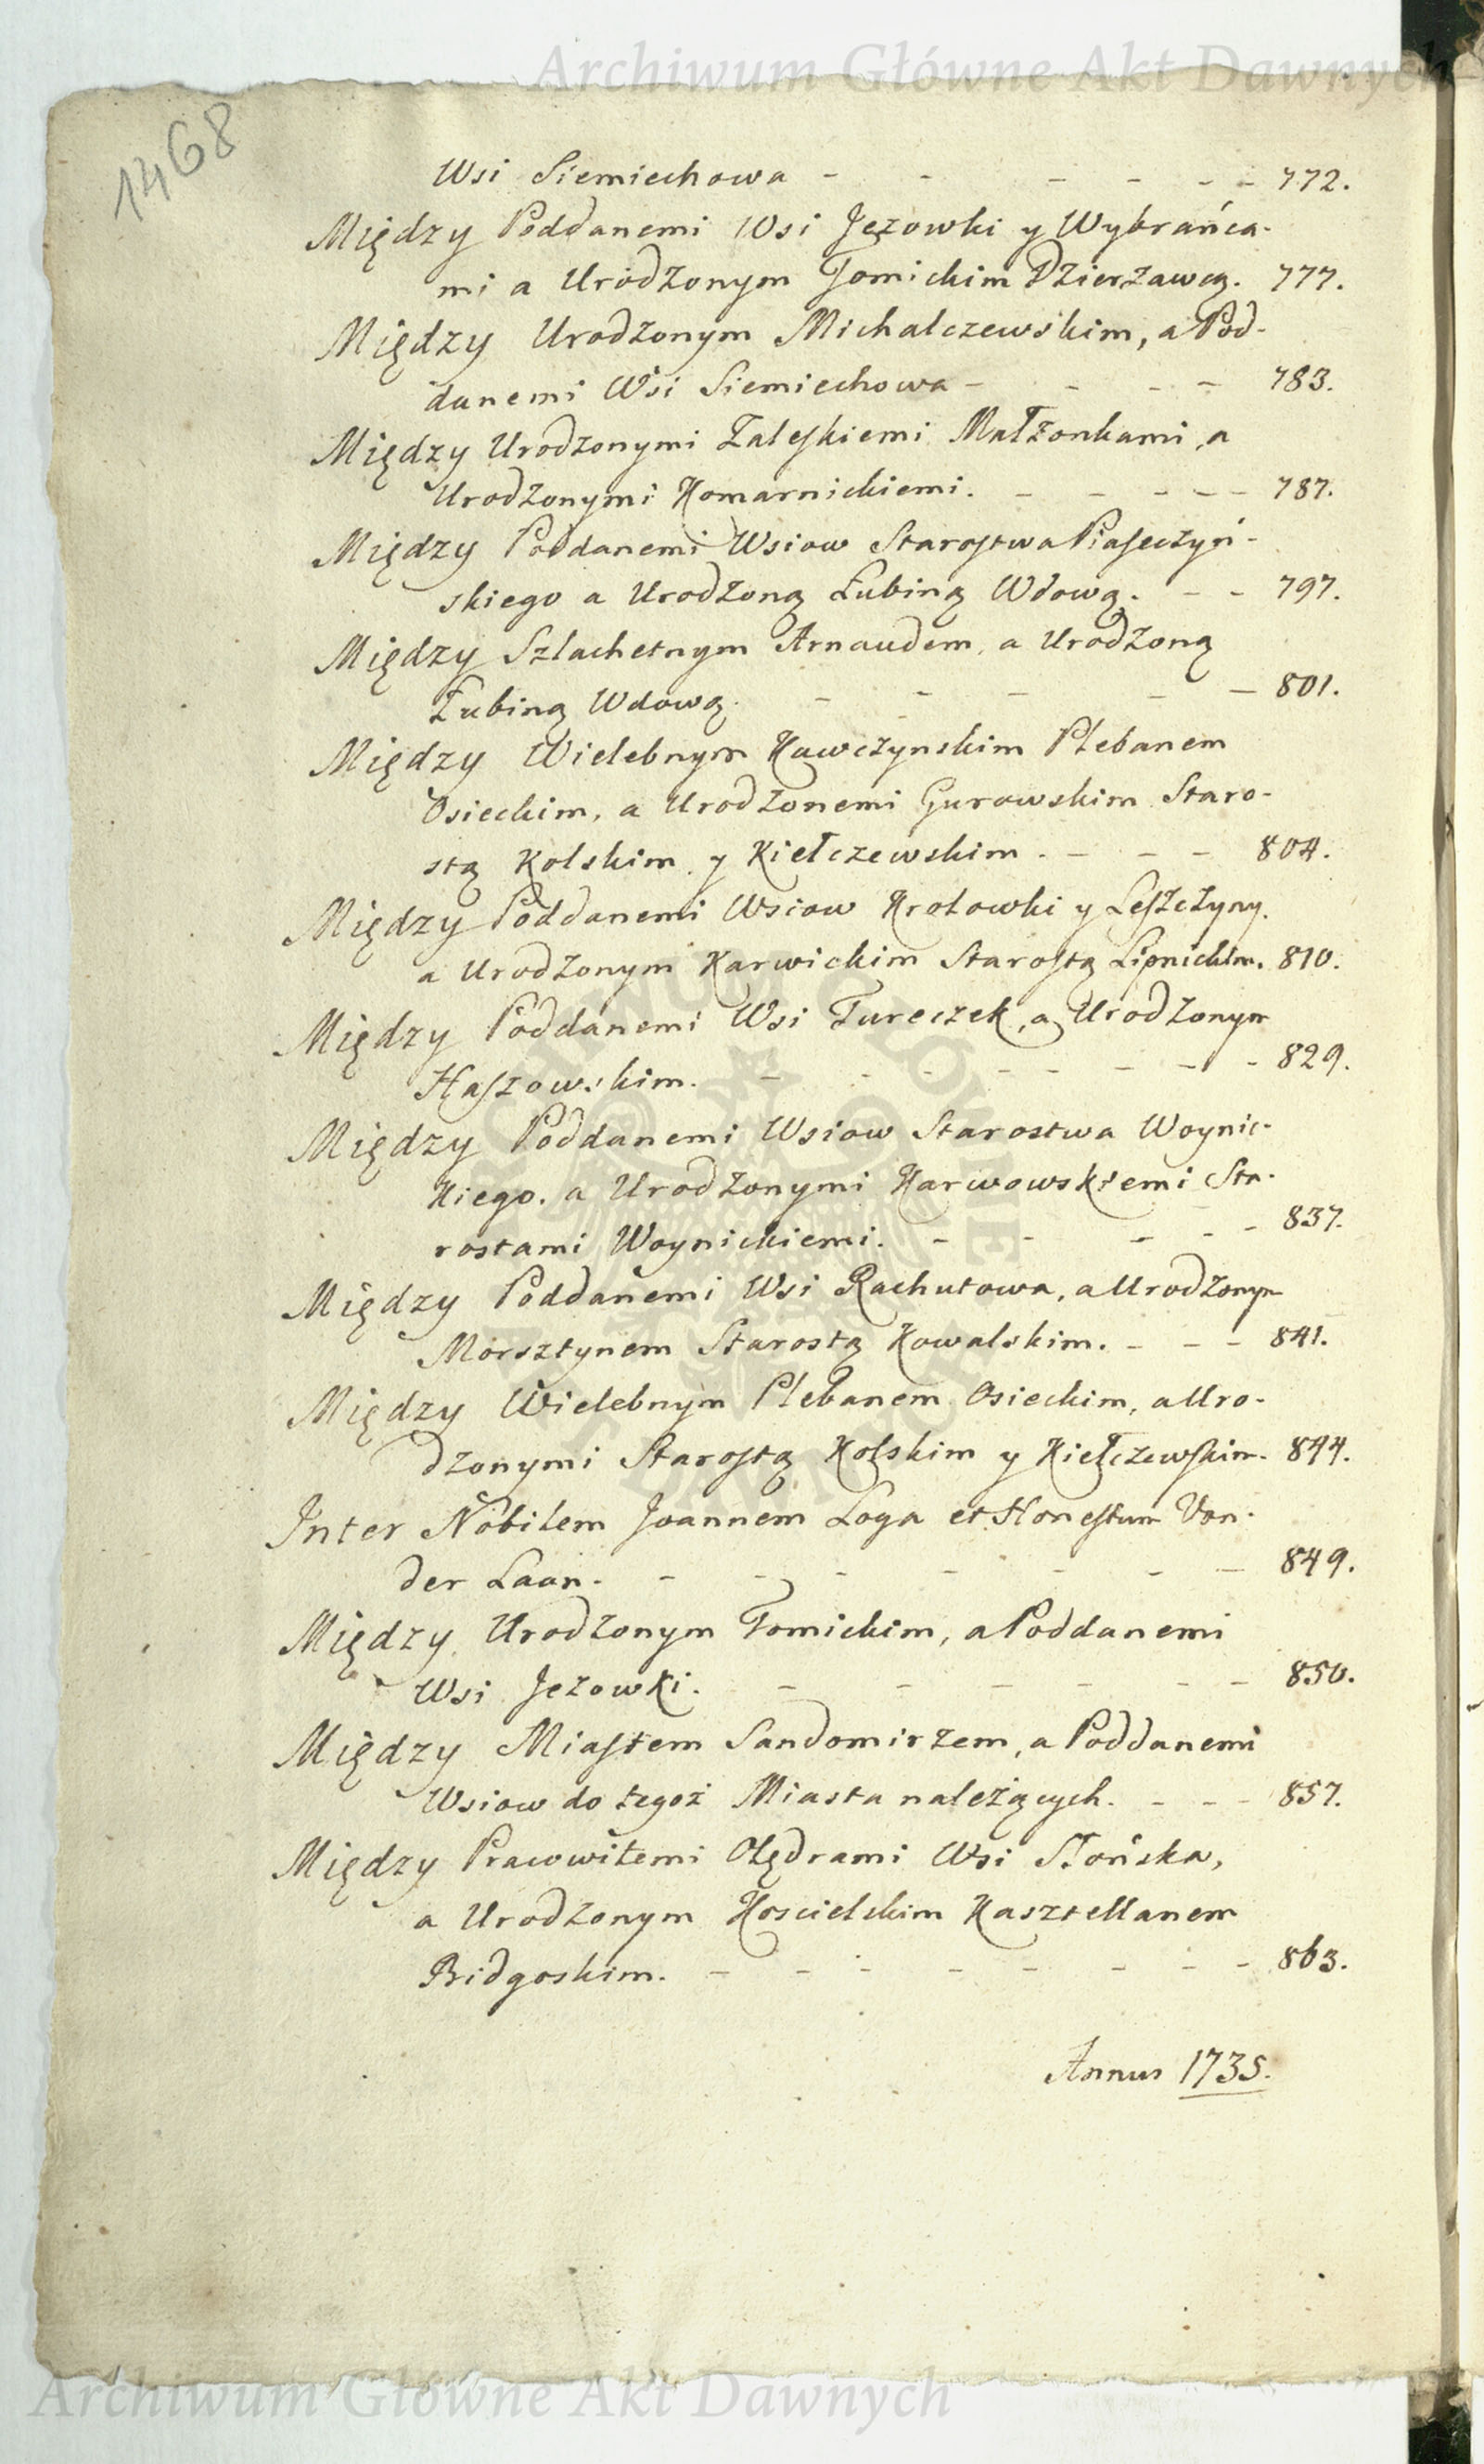 Archiwum Główne Akt Dawnych
1468
Wsi Siemiechowa - - - - - - 772.
Między Poddanemi Wsi Jeżowki y Wybrańca-
mi a Urodzonym Tomickim Dzierzawcą. 777.
Między Urodzonym Michalczewskim, a Pod-
danemi Wsi Siemiechowa - - - - 783.
Między Urodzonymi Zaleskiemi Małżonkami, a
Urodzonymi Komarnickiemi. - - - - - 787.
Między Poddanemi Wsiow Starostwa Piaseczyń-
skiego a Urodzoną Łubiną Wdową. - - 797.
Między Szlachetnym Arnaudem, a Urodzoną
Łubiną Wdową. - - - - - 801.
Między Wielebnym Kawczynskim Plebanem
Osieckim, a Urodzonemi Gurowskim Staro-
stą Kolskim y Kiełczewskim. - - - 804.
Między Poddanemi Wsiow Krolowki y Leszczyny.
a Urodzonym Karwickim Starostą Lipnickim. 810.
Między Poddanemi Wsi Tureczek, a Urodzonym
Haszowskim. - - - - - - - - 829.
Między Poddanemi Wsiow Starostwa Woynic-
kiego. a Urodzonymi Karwowskiemi Sta-
rostami Woynickiemi. - - - - - 837.
Między Poddanemi Wsi Rachutowa, a Urodzonym
Morsztynem Starostą Kowalskim. - - - 841.
Między Wielebnym Plebanem Osieckim, a Uro-
dzonymi Starostą Kolskim y Kiełczewskim. 844.
Inter Nobilem Joannem Loga et Honestum Von-
der Laan. - - - - - - - 849.
Między Urodzonym Tomickim, a Poddanemi
Wsi Jeżowki. - - - - - - 850.
Między Miastem Sandomirzem, a Poddanemi
Wsiow do tegoż Miasta należących. - - - 857.
Między Prawowitemi Olędrami Wsi Słońska,
a Urodzonym Koscielskim Kasztellanem
Bidgoskim. - - - - - - - - 863.
Annus 1735.
Archiwum Główne Akt Dawnych